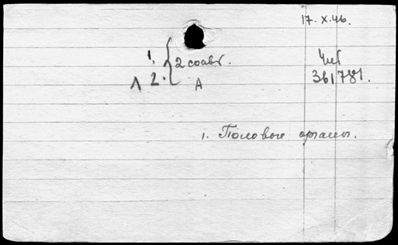 17. X. 46.
1.
2.
2 соавт.
Л
А
361781.
1. Половые органы.